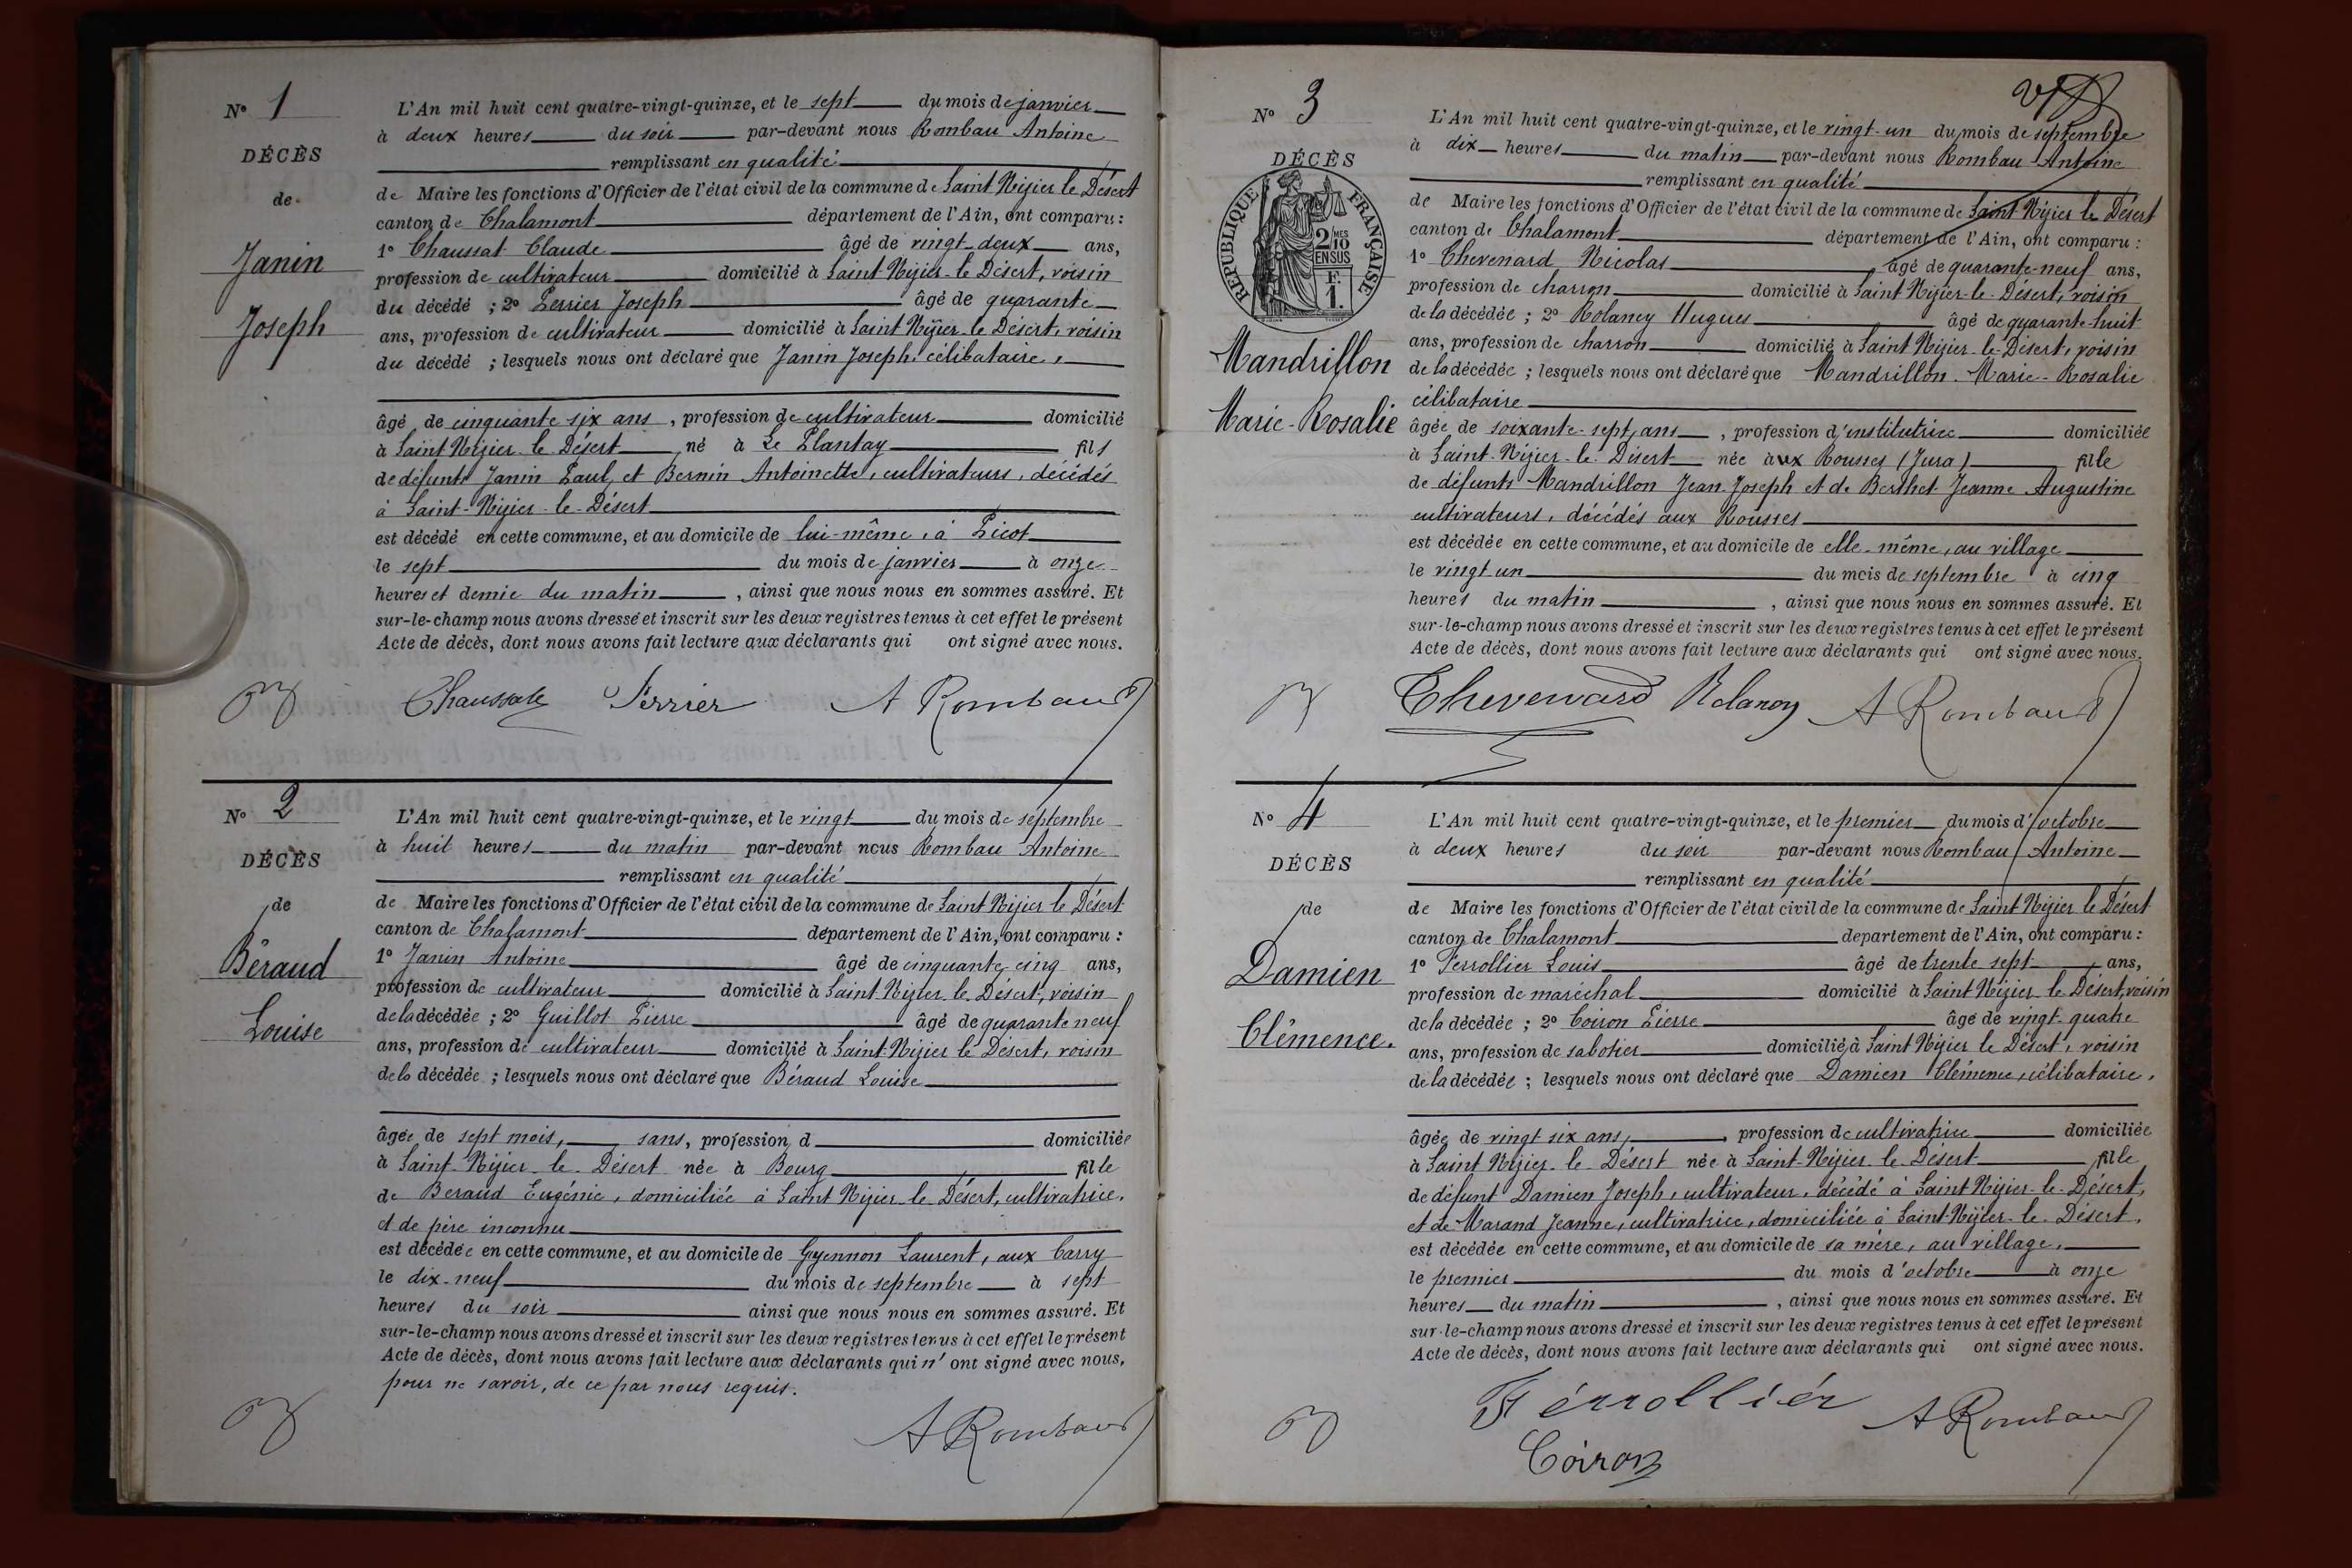 N° 1
DÉCÈS
de
Janin
Joseph
L'An mil huit cent quatre-vingt-quinze, et le sept du mois de janvier
à deux heures du soir par-devant nous Rombau Antoine
remplissant en qualité
de Maire les fonctions d'Officier de l'état civil de la commune de Saint Nizier le Désert
canton de Chalamont département de l'Ain, ont comparu :
1° Chaussat Claude âgé de vingt-deux ans,
profession de cultivateur domicilié à Saint Nizier-le Désert, voisin
du décédé ; 2° Perrier Joseph âgé de quarante
ans, profession de cultivateur domicilié à Saint Nizier-le Désert, voisin
du décédé ; lesquels nous ont déclaré que Janin Joseph, célibataire,
âgé de cinquante six ans, profession de cultivateur domicilié
à Saint Nizier-le Désert né à Le Plantay fils
de défunts Janin Paul, et Bernin Antoinette, cultivateurs, décédés
à Saint-Nizier-le-Désert
est décédé en cette commune, et au domicile de lui-même, à Picot
le sept du mois de janvier à onze
heures et demie du matin, ainsi que nous nous en sommes assuré. Et
sur-le-champ nous avons dressé et inscrit sur les deux registres tenus à cet effet le présent
Acte de décès, dont nous avons fait lecture aux déclarants qui ont signé avec nous.
Chaussat Perrier A Rombaud
N° 2
DÉCÈS
de
Béraud
Louise
L'An mil huit cent quatre-vingt-quinze, et le vingt du mois de septembre
à huit heures du matin par-devant nous Rombau Antoine
remplissant en qualité
de Maire les fonctions d'Officier de l'état civil de la commune de Saint Nizier le Désert
canton de Chalamont département de l'Ain, ont comparu :
1° Janin Antoine âgé de cinquante cinq ans,
profession de cultivateur domicilié à Saint-Nizier-le-Désert, voisin
de la décédée ; 2° Guillot Pierre âgé de quarante neuf
ans, profession de cultivateur domicilié à Saint-Nizier le Désert, voisin
de la décédée ; lesquels nous ont déclaré que Béraud Louise
âgée de sept mois, sans, profession d domiciliée
à Saint-Nizier-le-Désert née à Bourg fille
de Beraud Eugénie, domiciliée à Saint Nizier-le-Désert, cultivatrice,
et de père inconnu
est décédée en cette commune, et au domicile de Guyennon Laurent, aux Carry
le dix-neuf du mois de septembre à sept
heures du soir ainsi que nous nous en sommes assuré. Et
sur-le-champ nous avons dressé et inscrit sur les deux registres tenus à cet effet le présent
Acte de décès, dont nous avons fait lecture aux déclarants qui n'ont signé avec nous,
pour ne savoir, de ce par nous requis.
A Rombaud
N° 3
DÉCÈS
RÉPUBLIQUE FRANÇAISE
2/10 MES
EN SUS
F.
1.
Mandrillon
Marie-Rosalie
L'An mil huit cent quatre-vingt-quinze, et le vingt-un du mois de septembre
à dix heures du matin par-devant nous Rombau Antoine
remplissant en qualité
de Maire les fonctions d'Officier de l'état civil de la commune de Saint-Nizier le Désert
canton de Chalamont département de l'Ain, ont comparu :
1° Chevenard Nicolas, âgé de quarante-neuf ans,
profession de charron domicilié à Saint Nizier-le-Désert, voisin
de la décédée ; 2° Rolancy Hugues âgé de quarante-huit
ans, profession de charron domicilié à Saint Nizier-le-Désert, voisin
de la décédée ; lesquels nous ont déclaré que Mandrillon Marie-Rosalie
célibataire
âgée de soixante-sept ans, profession d'institutrice domiciliée
à Saint-Nizier-le-Désert née aux Rousses (Jura) fille
de défunts Mandrillon Jean-Joseph et de Berthet Jeanne Augustine
cultivateurs, décédés aux Rousses
est décédée en cette commune, et au domicile de elle-même, au village
le vingt un du mois de septembre à cinq
heures du matin, ainsi que nous nous en sommes assuré. Et
sur-le-champ nous avons dressé et inscrit sur les deux registres tenus à cet effet le présent
Acte de décès, dont nous avons fait lecture aux déclarants qui ont signé avec nous.
Chevenard Rolancy A Rombaud
N° 4
DÉCÈS
de
Damien
Clémence.
L'An mil huit cent quatre-vingt-quinze, et le premier du mois d'octobre
à deux heures du soir par-devant nous Rombau Antoine
remplissant en qualité
de Maire les fonctions d'Officier de l'état civil de la commune de Saint Nizier le Désert
canton de Chalamont département de l'Ain, ont comparu :
1° Ferrollier Louis âgé de trente sept ans,
profession de maréchal domicilié à Saint Nizier le Désert, voisin
de la décédée ; 2° Coiron Pierre âgé de vingt-quatre
ans, profession de sabotier domicilié à Saint Nizier le Désert, voisin
de la décédée ; lesquels nous ont déclaré que Damien Clémence, célibataire,
âgée de vingt six ans, profession de cultivatrice domiciliée
à Saint Nizier-le-Désert née à Saint-Nizier-le-Désert fille
de défunt Damien Joseph, cultivateur, décédé à Saint Nizier-le-Désert,
et de Marand Jeanne, cultivatrice, domiciliée à Saint-Nizier-le-Désert,
est décédée en cette commune, et au domicile de sa mère, au village,
le premier du mois d'octobre à onze
heures du matin, ainsi que nous nous en sommes assuré. Et
sur-le-champ nous avons dressé et inscrit sur les deux registres tenus à cet effet le présent
Acte de décès, dont nous avons fait lecture aux déclarants qui ont signé avec nous.
Ferrolliér A Rombaud
Coiron